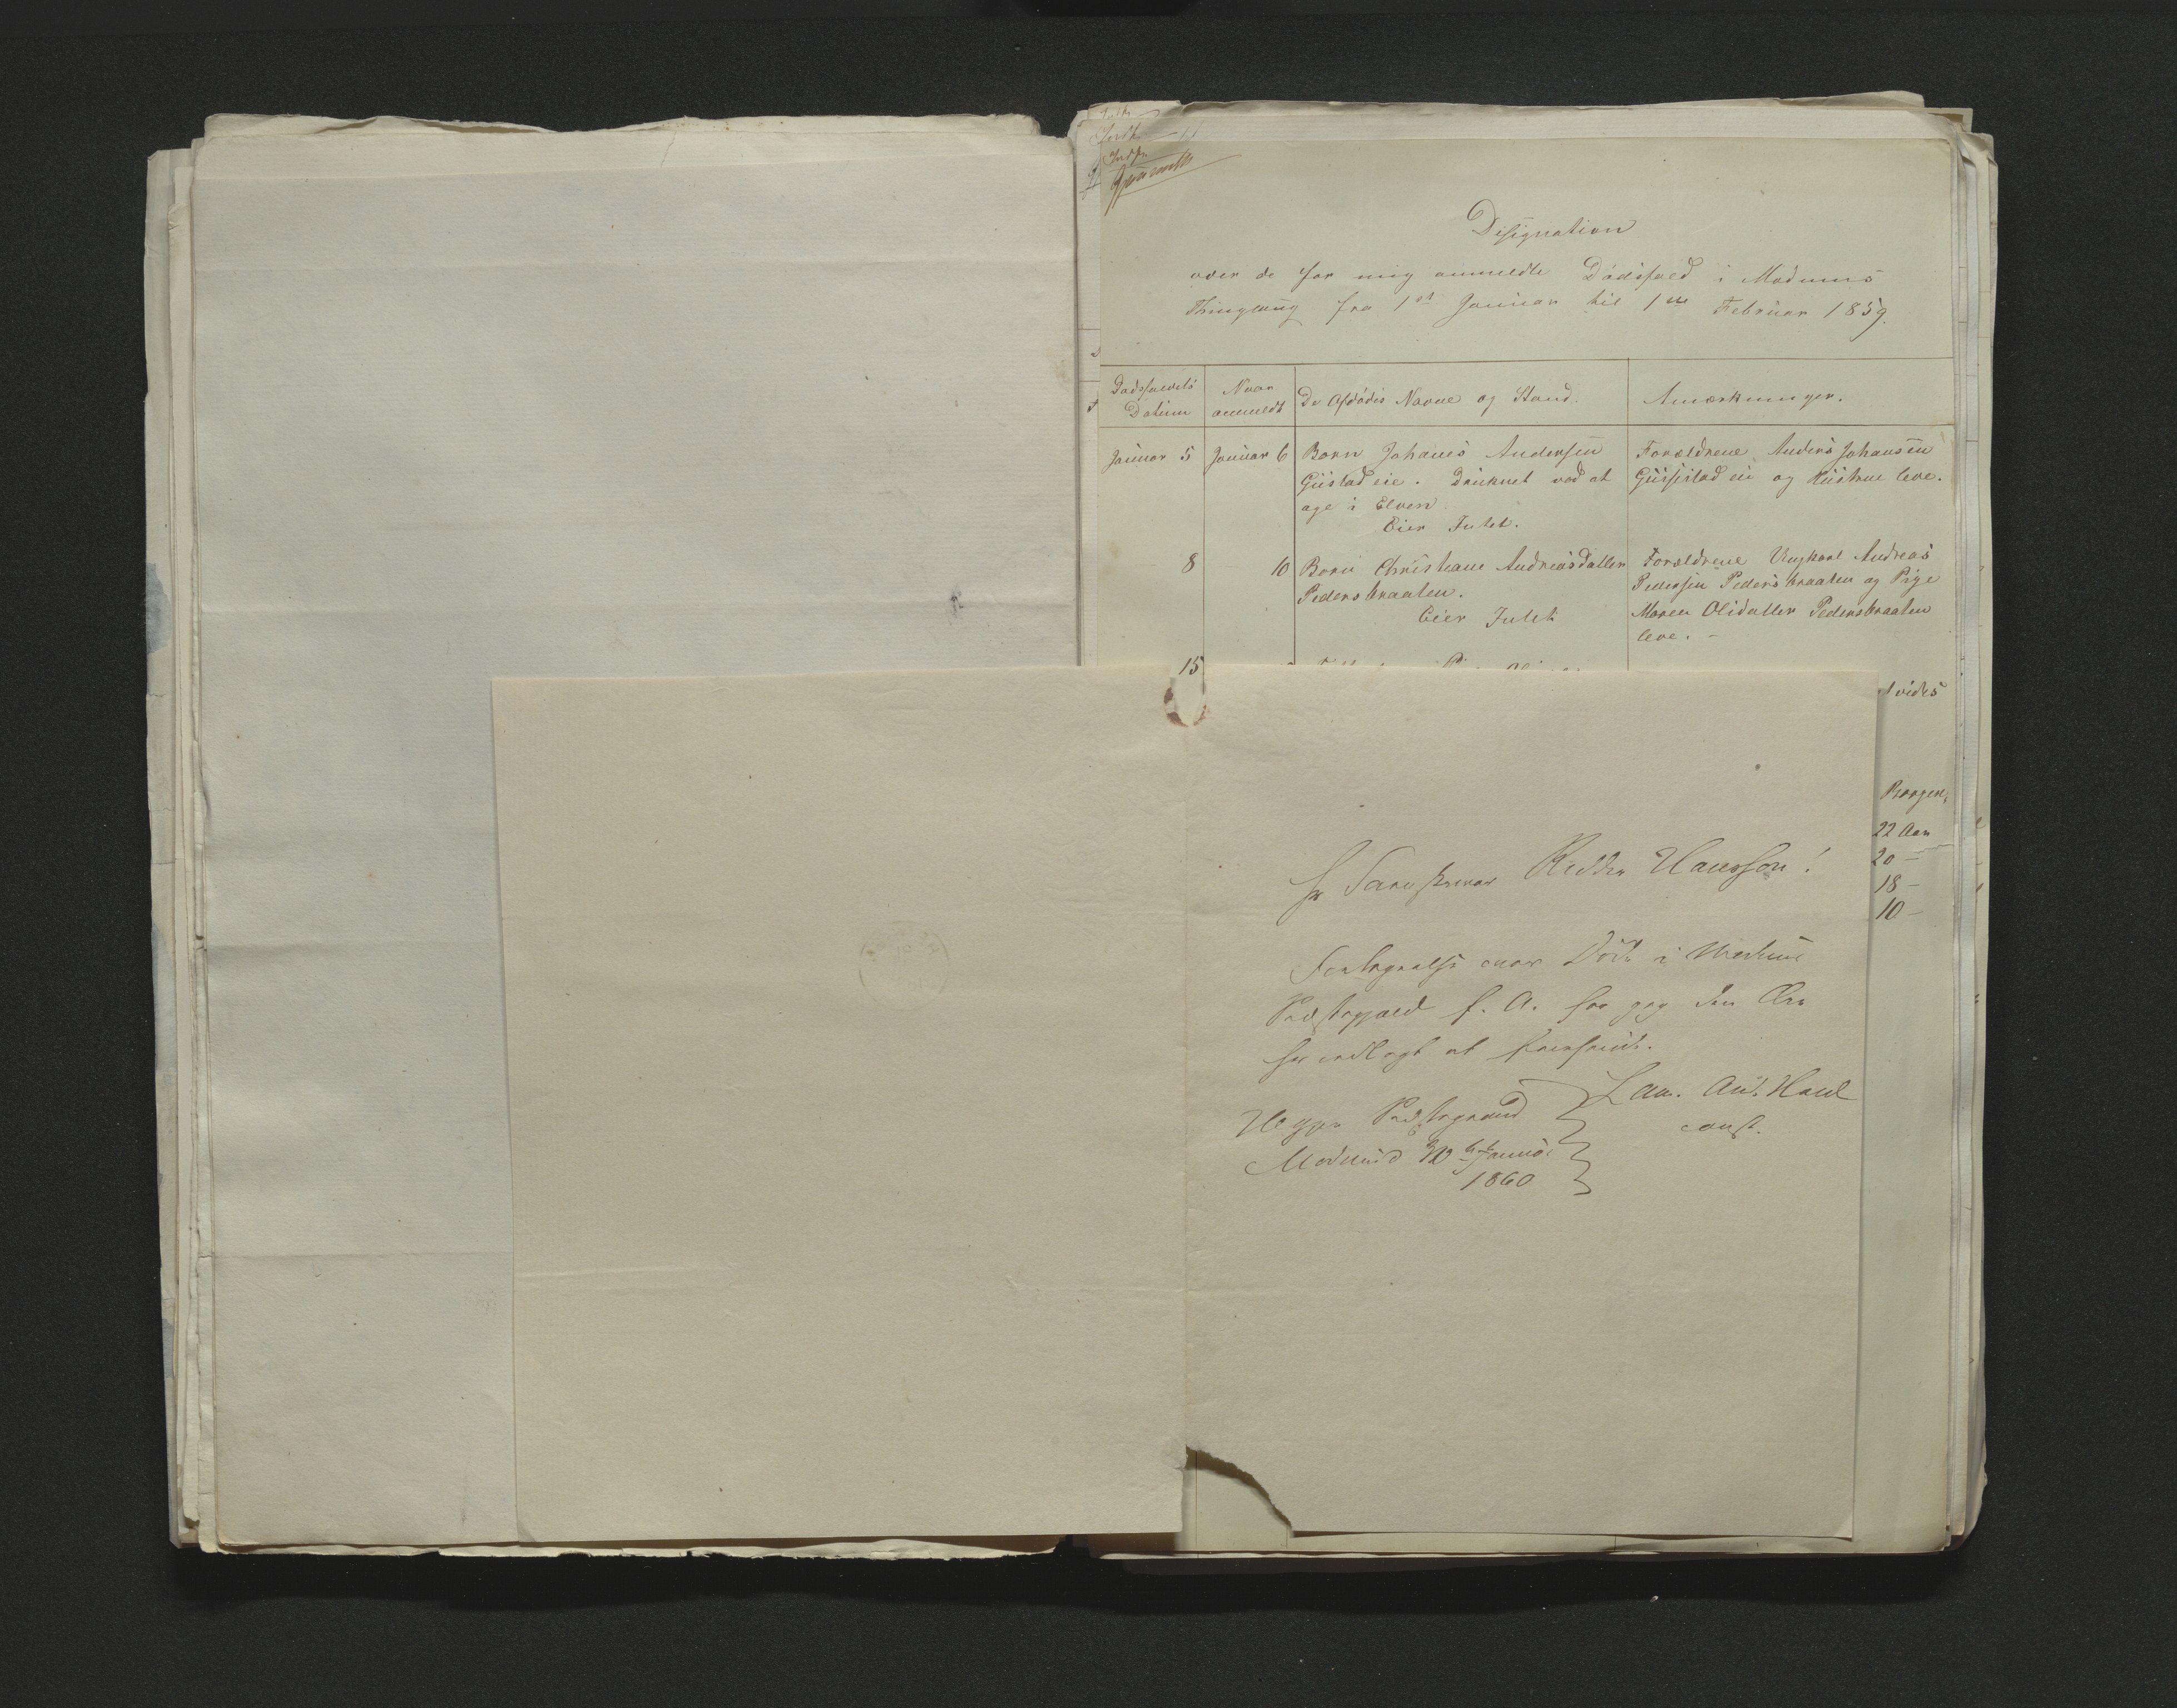 Designation
over de for mig anmeldte Dødsfald i Modums
Thinglaug fra 1st Januar til 1ste Februar 1859.
Dødsfaldets Datum
Naar anmeldt
De Afdødes Navne og Stand.
Anmærkninger.
Januar 5 Januar 6 Barn Johans Andersen
Giistad eie. Druknet ved at
age i Elven.
Eier Intet.
Forældrene Anders Johansen
eie og Hustrue leve.
8 10 Barn Christiane Andreasdatter
Pedersbraaten.
Eier Intet
Forældrene Ungkarl Andreas
Pedersen Pedersbraaten og Pige
Maren Olsdatter Pedersbraaten
leve. -
15
vides
22 Aar
20 -
18 -
10 -
Hr Sorenskriver Ridder Hansson!
Fortegnelse over Døde i Modums
Præstegjæld f. A. har jeg den Ære
her indlagt at fremsende.
Heggen Præstegaard
Modum d. Januar
1860
const.